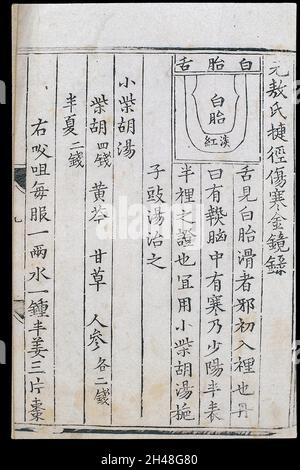 元敖氏捷徑傷寒金鏡錄
白胎舌
白胎
淡紅
舌見白胎滑者邪初入裡也丹
曰有熱胸中有寒乃少陽半表
半裡之證也宜用小柴胡湯梔
子豉湯治之
小柴胡湯
柴胡四錢 黃芩 甘草 人參各二錢
半夏二錢
右㕮咀每服一兩水一鍾半姜三片棗
alamy
Image ID: 2H48G80
www.alamy.com